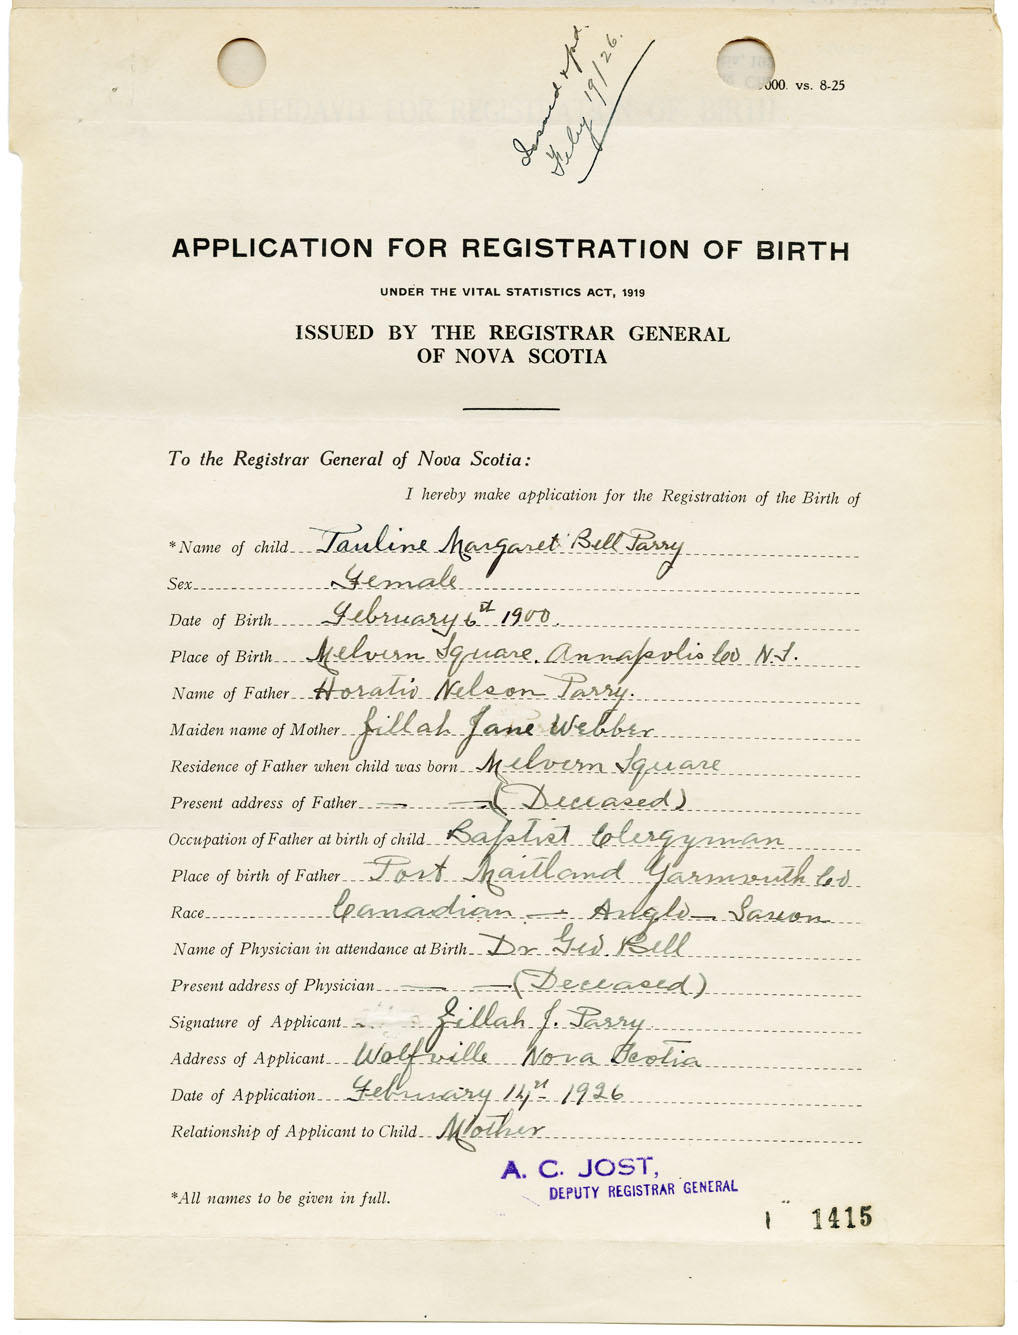 Issued & pd.
Feby 19/26.
000. vs. 8-25
APPLICATION FOR REGISTRATION OF BIRTH
UNDER THE VITAL STATISTICS ACT, 1919
ISSUED BY THE REGISTRAR GENERAL
OF NOVA SCOTIA
To the Registrar General of Nova Scotia:
I hereby make application for the Registration of the Birth of
*Name of child Pauline Margaret Bell Parry
Sex Female
Date of Birth February 6st 1900.
Place of Birth Melvern Square. Annapolis Co N.S.
Name of Father Horatio Nelson Parry.
Maiden name of Mother Zillah Jane Webber
Residence of Father when child was born Melvern Square
Present address of Father — — (Deceased)
Occupation of Father at birth of child Baptist Clergyman
Place of birth of Father Port Maitland Yarmouth Co
Race Canadian — Anglo — Saxon
Name of Physician in attendance at Birth Dr Geo. Bell
Present address of Physician — — (Deceased)
Signature of Applicant Zillah J. Parry.
Address of Applicant Wolfville Nova Scotia
Date of Application February 14st 1926
Relationship of Applicant to Child Mother
A. C. JOST,
DEPUTY REGISTRAR GENERAL
*All names to be given in full.
1415